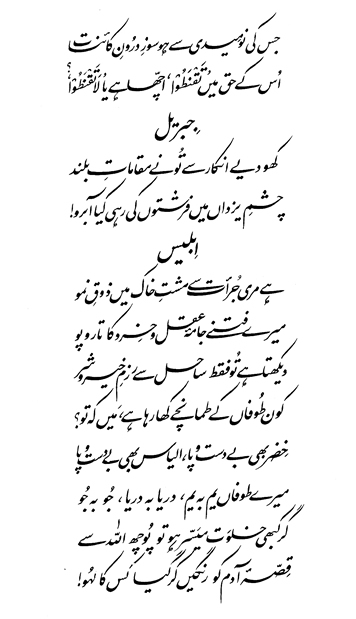 جس کی نومیدی سے ہو سوزِ درونِ کائنات
اُس کے حق میں تَقنَطُوْا، اچھا ہے یا لَا تَقْنَطُوْا؟
جبریل
کھو دیے انکار سے تُو نے مقاماتِ بلند
چشمِ یزداں میں فرشتوں کی رہی کیا آبرو!
ابلیس
ہے مری جُرأت سے مُشتِ خاک میں ذوقِ نمو
میرے فتنے جامۂ عقل و خرد کا تار و پو
دیکھتا ہے تُو فقط ساحل سے رزمِ خیر و شر
کون طُوفاں کے طمانچے کھا رہا ہے، مَیں کہ تو؟
خضر بھی بے دست و پا، الیاس بھی بے دست و پا
میرے طوفاں یم بہ یم، دریا بہ دریا، جُو بہ جُو
گر کبھی خلوَت میسّر ہو تو پُوچھ اللہ سے
قِصّۂ آدم کو رنگیں کر گیا کس کا لہُو!